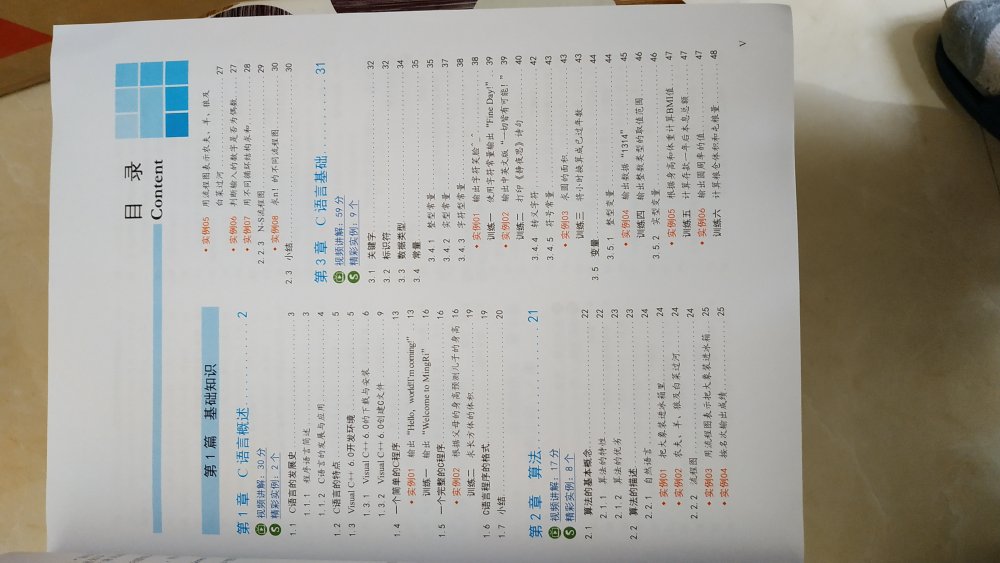 目 录
Content
第 1 篇 基础知识
第 1 章 C 语言概述 2
视频讲解：30 分
精彩实例：2 个
1.1 C语言的发展史 3
1.1.1 程序语言简述 3
1.1.2 C语言的发展与应用 4
1.2 C语言的特点 5
1.3 Visual C++ 6.0开发环境 5
1.3.1 Visual C++ 6.0的下载与安装 6
1.3.2 Visual C++ 6.0创建C文件 9
1.4 一个简单的C程序 13
• 实例01 输出“Hello, world!I'm coming!” 13
训练一 输出“Welcome to MingRi” 16
1.5 一个完整的C程序 16
• 实例02 根据父母的身高预测儿子的身高 16
训练二 求长方体的体积 19
1.6 C语言程序的格式 19
1.7 小结 20
第 2 章 算法 21
视频讲解：17 分
精彩实例：8 个
2.1 算法的基本概念 22
2.1.1 算法的特性 22
2.1.2 算法的优劣 23
2.2 算法的描述 23
2.2.1 自然语言 24
• 实例01 把大象装进冰箱里 24
• 实例02 农夫、羊、狼及白菜过河 24
2.2.2 流程图 24
• 实例03 用流程图表示把大象装进冰箱 25
• 实例04 按名次输出成绩 25
• 实例05 用流程图表示农夫、羊、狼及
白菜过河 27
• 实例06 判断输入的数字是否为偶数 27
• 实例07 用不同循环结构求和 28
2.2.3 N-S流程图 29
• 实例08 求n！的不同流程图 30
2.3 小结 30
第 3 章 C 语言基础 31
视频讲解：59 分
精彩实例：9 个
3.1 关键字 32
3.2 标识符 32
3.3 数据类型 34
3.4 常量 35
3.4.1 整型常量 35
3.4.2 实型常量 37
3.4.3 字符型常量 38
• 实例01 输出字符笑脸^_^ 38
训练一 使用字符常量输出“Fine Day!” 39
• 实例02 输出中英文版“一切皆有可能！” 39
训练二 打印《静夜思》诗句 40
3.4.4 转义字符 42
3.4.5 符号常量 43
• 实例03 求圆的面积 43
训练三 将小时换算成已过年数 43
3.5 变量 44
3.5.1 整型变量 44
• 实例04 输出数据“1314” 45
训练四 输出整数类型的取值范围 46
3.5.2 实型变量 46
• 实例05 根据身高和体重计算BMI值 47
训练五 计算存款一年后本息总额 47
• 实例06 输出圆周率的值 47
训练六 计算粮仓体积和毛粮量 48
V